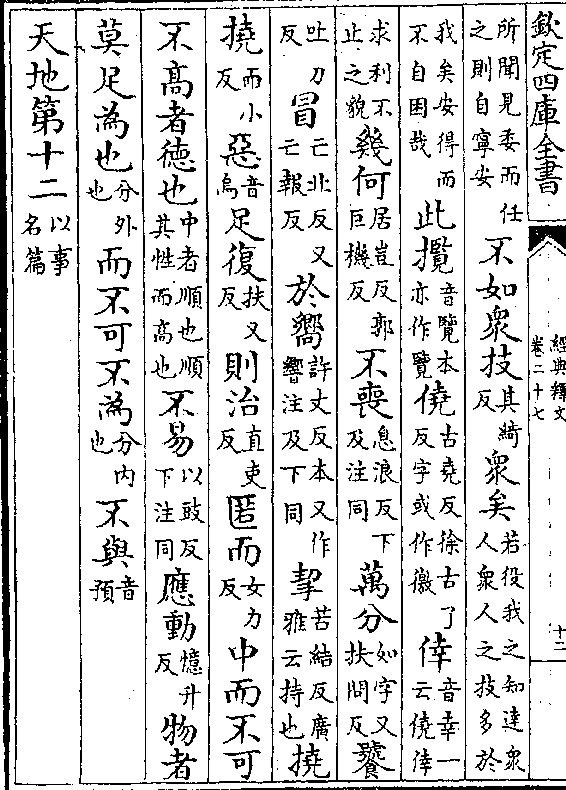 欽定四庫全書
經典釋文
卷二十七
十二
所聞見委而任之則自寧安不如衆技其綺反衆矣若役我之知達衆人衆人之技多於
我矣安得而不自困哉此攬音覽本亦作覽僥古堯反徐古了反字或作徼倖音幸一云僥倖
求利不止之貌幾何居豈反郭巨機反不喪息浪反下及注同萬分如字又扶問反饕
吐刀反冒亡北反又亡報反於嚮許丈反本又作響注及下同挈苦結反廣雅云持也撓
而小反惡音烏足復扶又反則治直吏反匿而女力反中而不可
不高者德也中者順也順其性而高也不易以豉反下注同應動憶升反物者
莫足為也分外也而不可不為分内也不與音預
天地第十二以事名篇